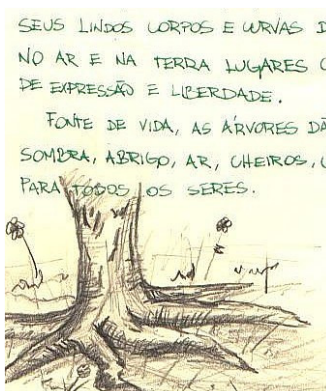 SEUS LINDOS CORPOS E CURVAS
NO AR E NA TERRA LUGARES
DE EXPRESSÃO E LIBERDADE.
FONTE DE VIDA, AS ÁRVORES DÃ
SOMBRA, ABRIGO, AR, CHEIROS,
PARA TODOS OS SERES.